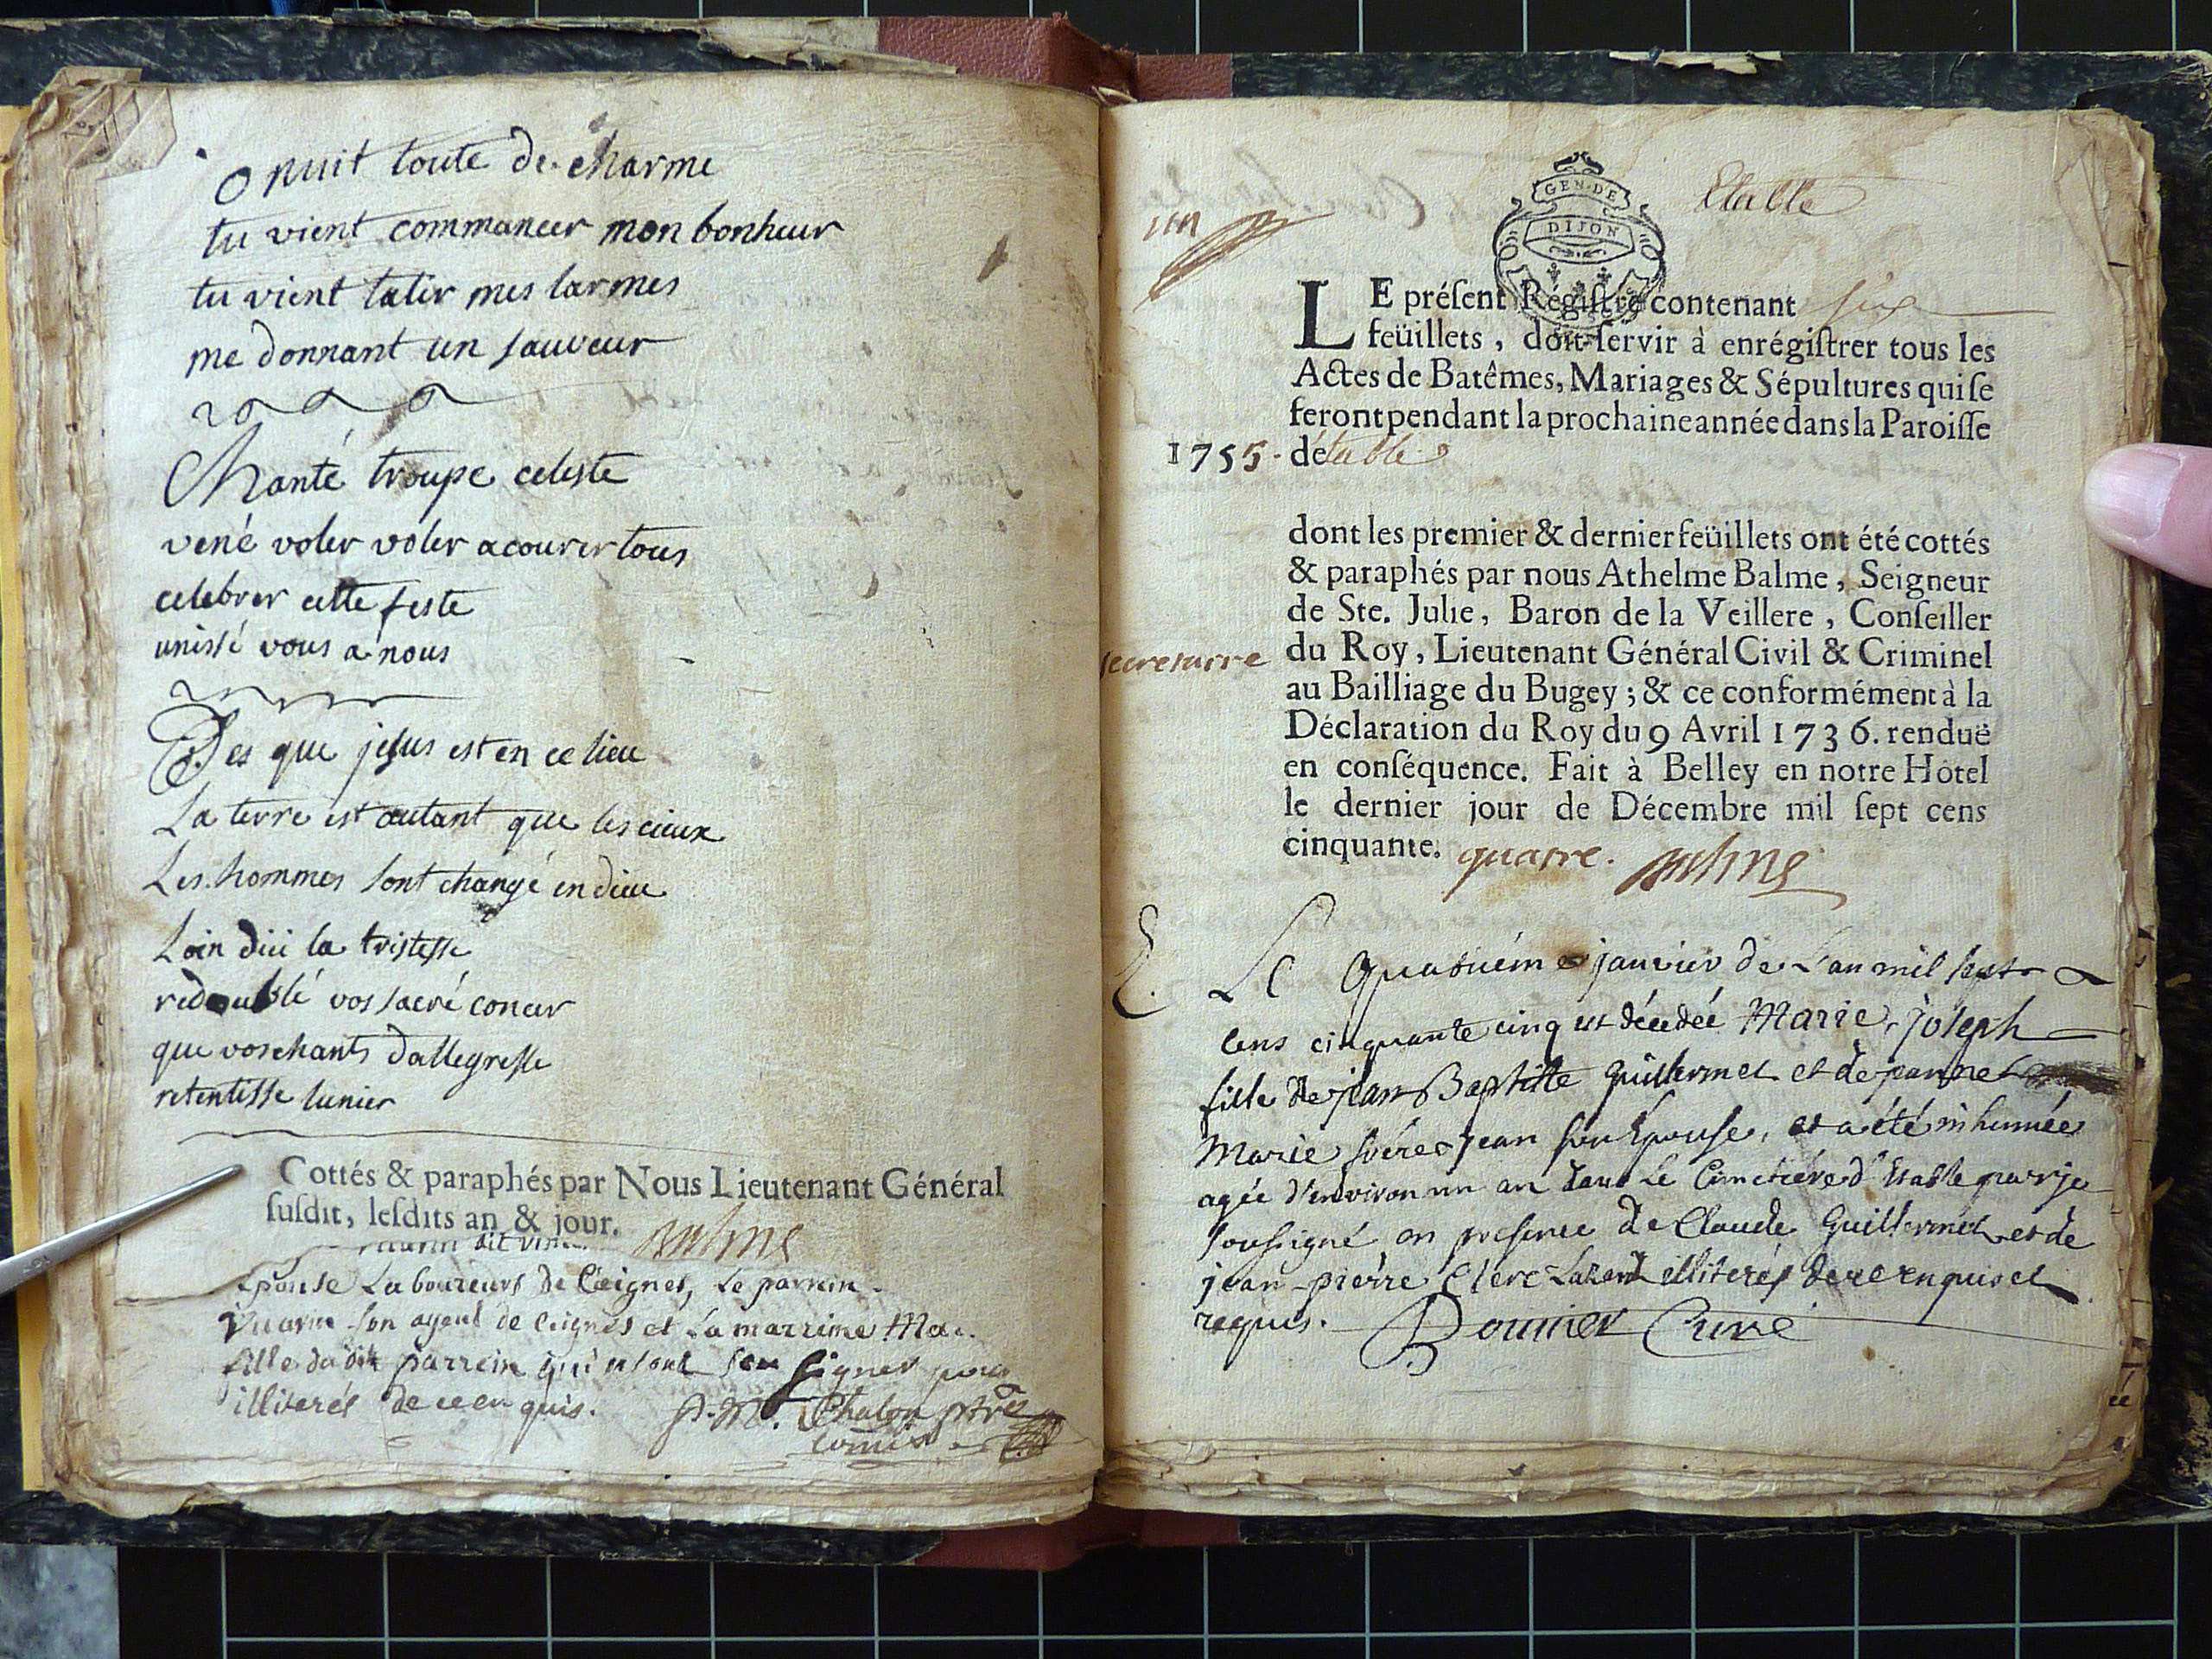 O nuit toute de charme
tu vient commancer mon bonheur
tu vient tatir mes larmes
me donnant un sauveur
Chanté troupe celeste
vené voler voler acourer tous
celebrer cette feste
unissé vous a nous
Des que jesus est en ce lieu
La terre est autant que les cieux
Les hommes sont changé en dieu
Loin dici la tristesse
redoublé vos sacré concer
que vos chants dallegresse
retentisse lunier
Cottés & paraphés par Nous Lieutenant Général
ſuſdit, leſdits an & jour. Balme
épouse Laboureurs de Ceignes, Le parrein
Vuarin son ayeul de Ceignes et La marraine Ma
fille du dit parrein qui n'ont seu signer pour
illiterés de ce enquis. Chalon ptre
comis
un
Etable
GEN·DE
DIJON
LE préſent Régiſtre contenant six
feüillets, doit ſervir à enrégiſtrer tous les
Actes de Batêmes, Mariages & Sépultures qui ſe
feront pendant la prochaine année dans la Paroiſſe
1755. détable
dont les premier & dernier feüillets ont été cottés
& paraphés par nous Athelme Balme, Seigneur
de Ste. Julie, Baron de la Veillere, Conſeiller
secretaire du Roy, Lieutenant Général Civil & Criminel
au Bailliage du Bugey; & ce conformément à la
Déclaration du Roy du 9 Avril 1736. renduë
en conſéquence. Fait à Belley en notre Hôtel
le dernier jour de Décembre mil ſept cens
cinquante. quatre. Balme
Le quatriéme janvier de L'an mil sept
cens cinquante cinq est décedée Marie, joseph
fille de jean Baptiste Guillermet et de jeanne
Marie jean son Epouse, et a été inhumée
agée d'environ un an dans Le Cimetiére d'Etable par je
soussigné en presence de Claude Guillermet et de
jean-pierre Clerc illiterés de ce enquis et
requis. Curé